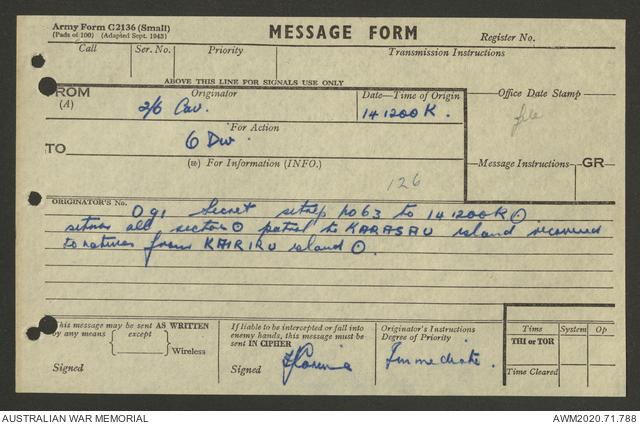 Army Form C2136 (Small)
(Pads of 100) (Adapted Sept. 1943)
MESSAGE FORM
Register No.
Call
Ser. No.
Priority
Transmission Instructions
ABOVE THIS LINE FOR SIGNALS USE ONLY
FROM
(A)
Originator
2/6 Cav.
Date—Time of Origin
141200K.
Office Date Stamp
file
TO
For Action
6 Div.
(W) For Information (INFO.)
126
Message Instructions
GR
ORIGINATOR'S No.
O91 Secret sitrep no 63 to 141200K ⊙
all sectors ⊙ patrol to KARASAU island recovered
natives from KAIRIRU island ⊙.
This message may be sent AS WRITTEN
by any means except
Wireless
Signed
If liable to be intercepted or fall into
enemy hands, this message must be
sent IN CIPHER
Signed
Originator's Instructions
Degree of Priority
Immediate.
Time
System
Op
THI or TOR
Time Cleared
AUSTRALIAN WAR MEMORIAL
AWM2020.71.788